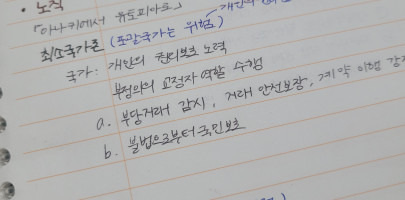 • 노직
「아나키에서 유토피아로」
최소국가론 (포괄국가는 위험)
국가: 개인의 권리보호 노력
부정의의 교정자 역할 수행
a. 부당거래 감시, 거래 안전보장, 계약 이행 강
b. 불법으로부터 국민보호